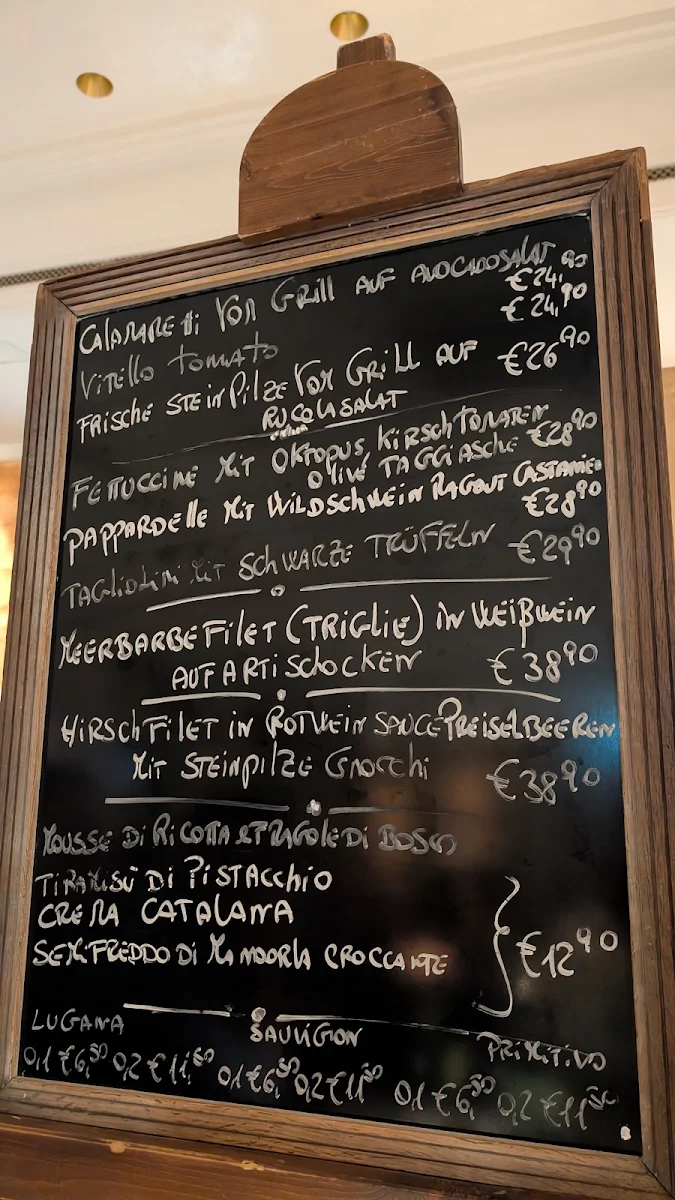 CALAMARETTI VOM GRILL AUF AVOCADOSALAT €24,90
VITELLO TOMATO €24,90
FRISCHE STEINPILZE VOM GRILL AUF €26,90
RUCOLASALAT
FETTUCCINE MIT OKTOPUS, KIRSCHTOMATEN
OLIVE TAGGIASCHE €28,90
PAPPARDELLE MIT WILDSCHWEIN RAGOUT CASTANIEN
€28,90
TAGLIOLINI MIT SCHWARZE TRÜFFELN €29,90
MEERBARBEFILET (TRIGLIE) IN WEIßWEIN
AUF ARTISCHOCKEN €38,90
HIRSCHFILET IN ROTWEIN SAUCE PREISELBEEREN
MIT STEINPILZE GNOCCHI €38,90
MOUSSE DI RICOTTA E FRAGOLE DI BOSCO
TIRAMISÙ DI PISTACCHIO
CREMA CATALANA
SEMIFREDDO DI MANDORLA CROCCANTE
€12,90
LUGANA SAUVIGNON PRIMITIVO
0,1 €6,50 0,2 €11,50 0,1 €6,50 0,2 €11,50 0,1 €6,50 0,2 €11,50